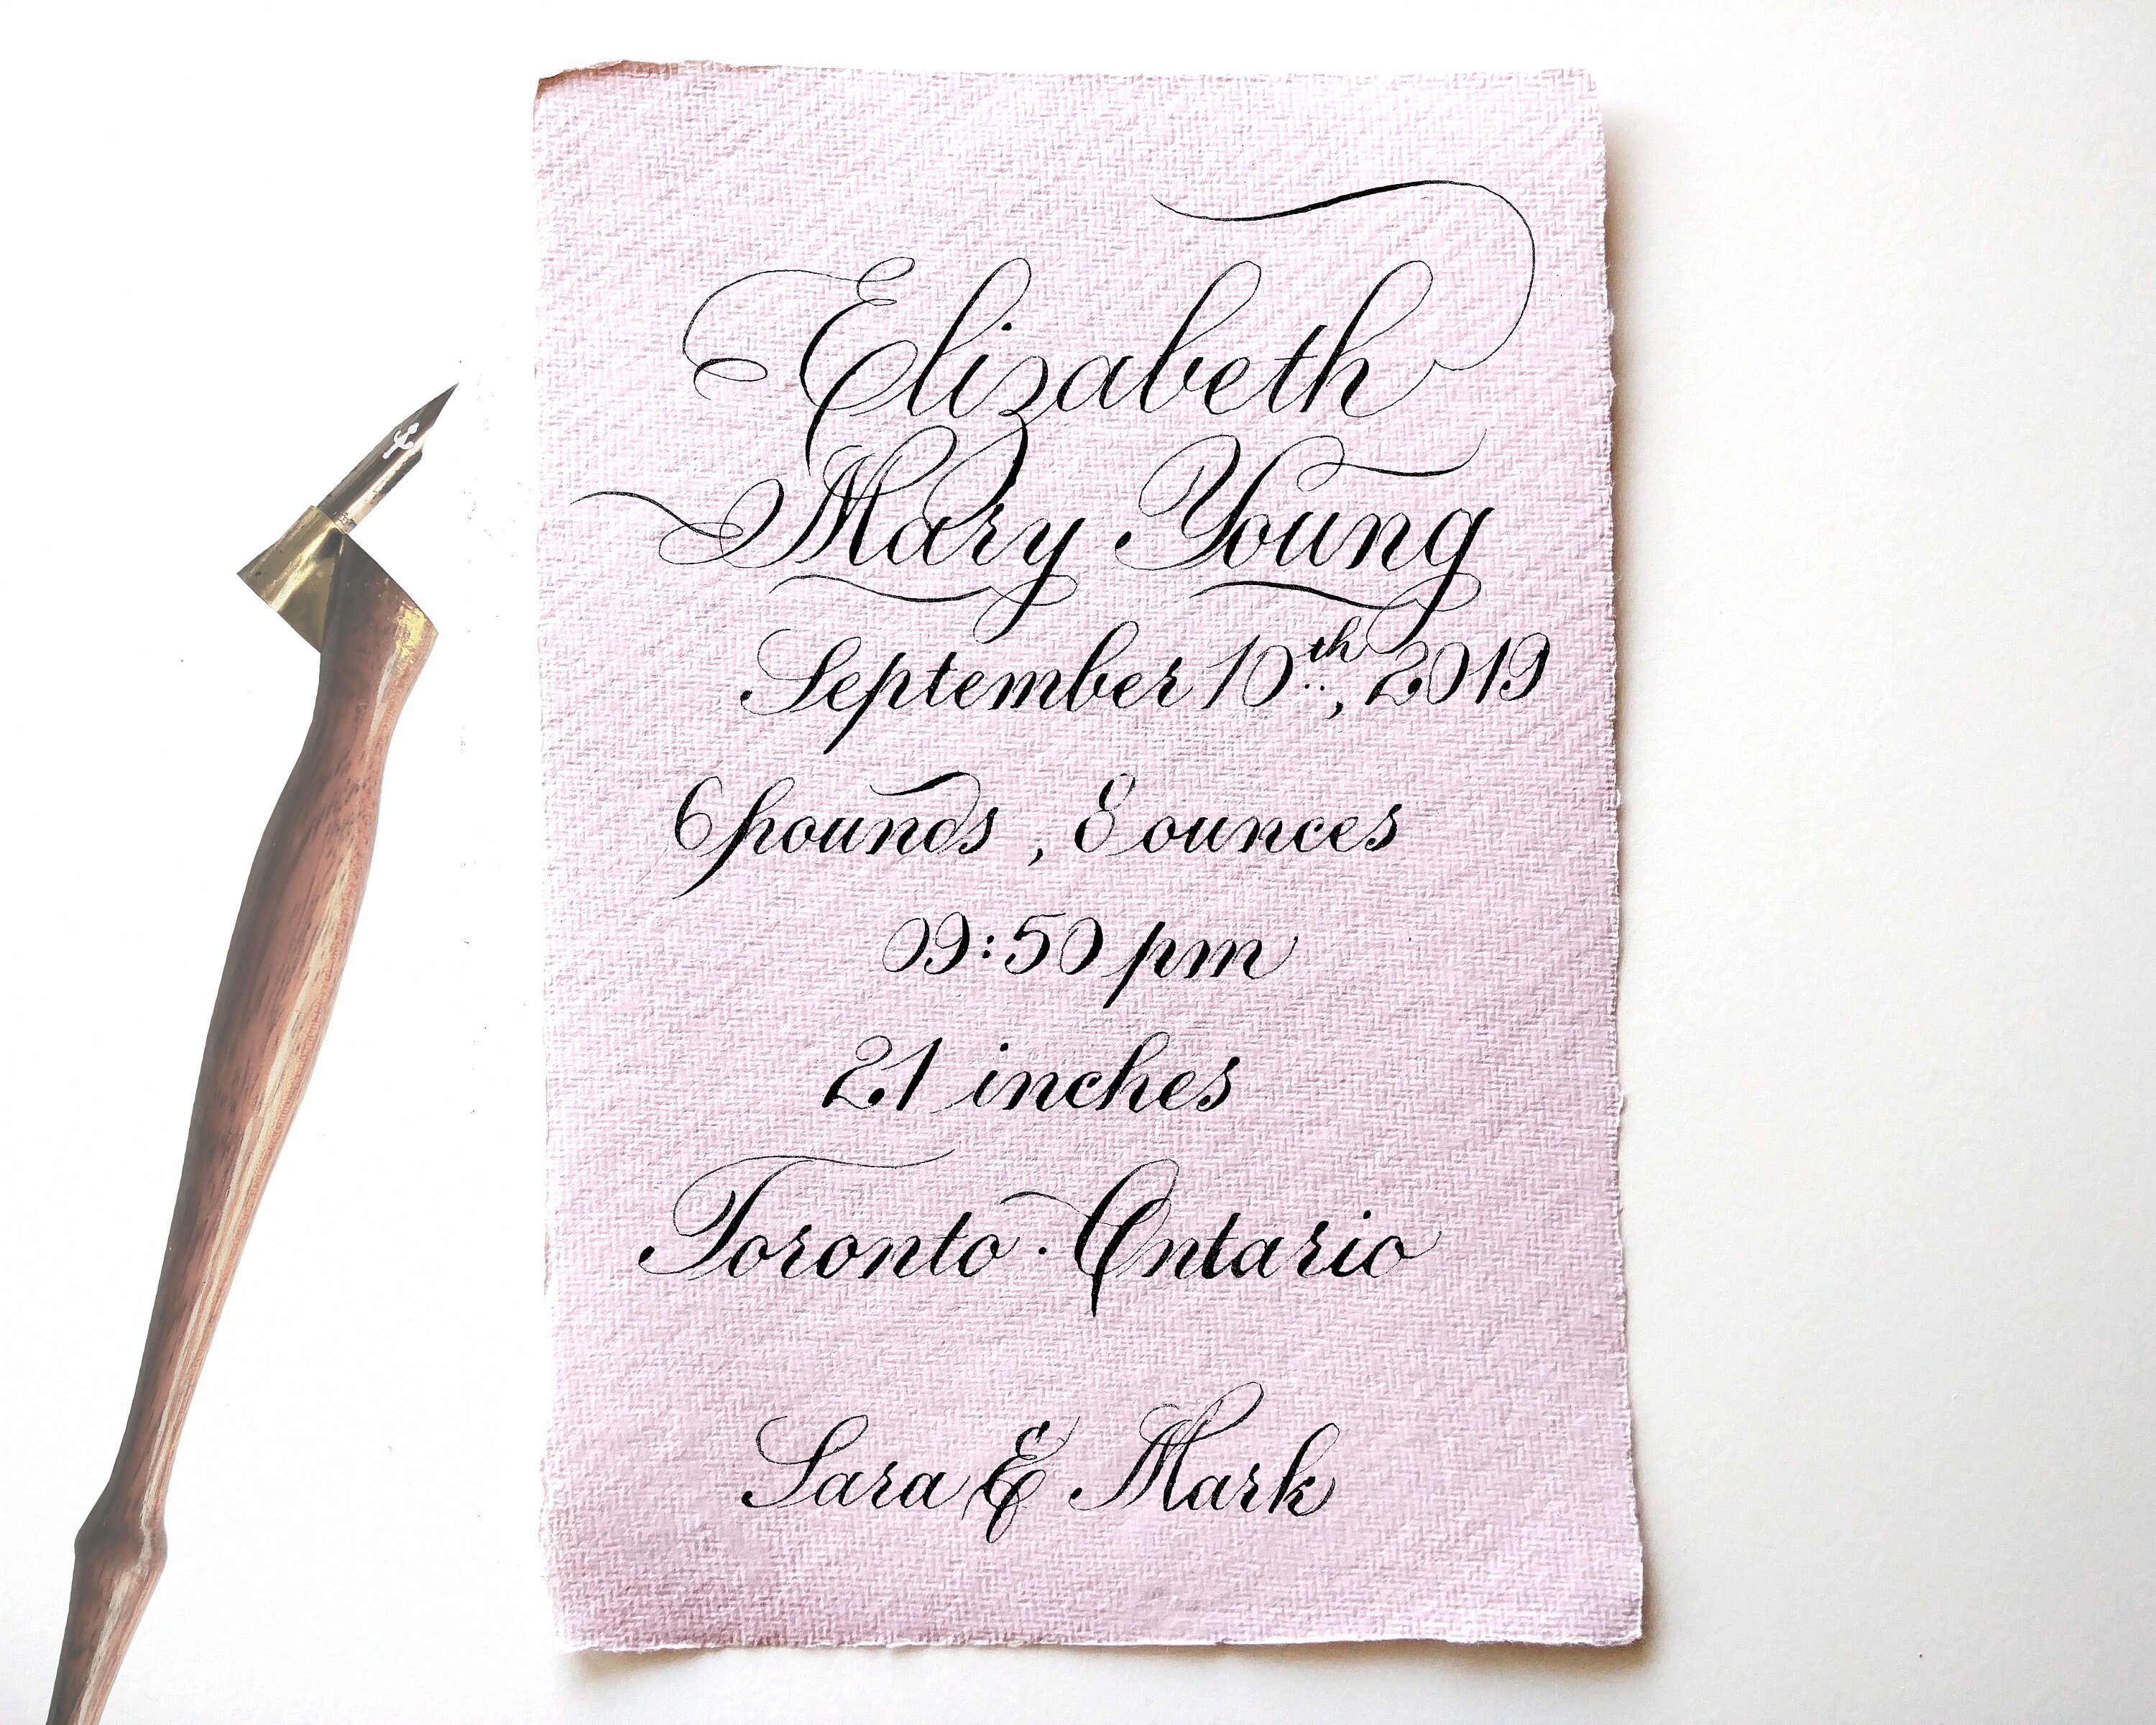 Elizabeth
Mary Young
September 10th, 2019
6 pounds, 8 ounces
09:50 pm
21 inches
Toronto · Ontario
Sara & Mark